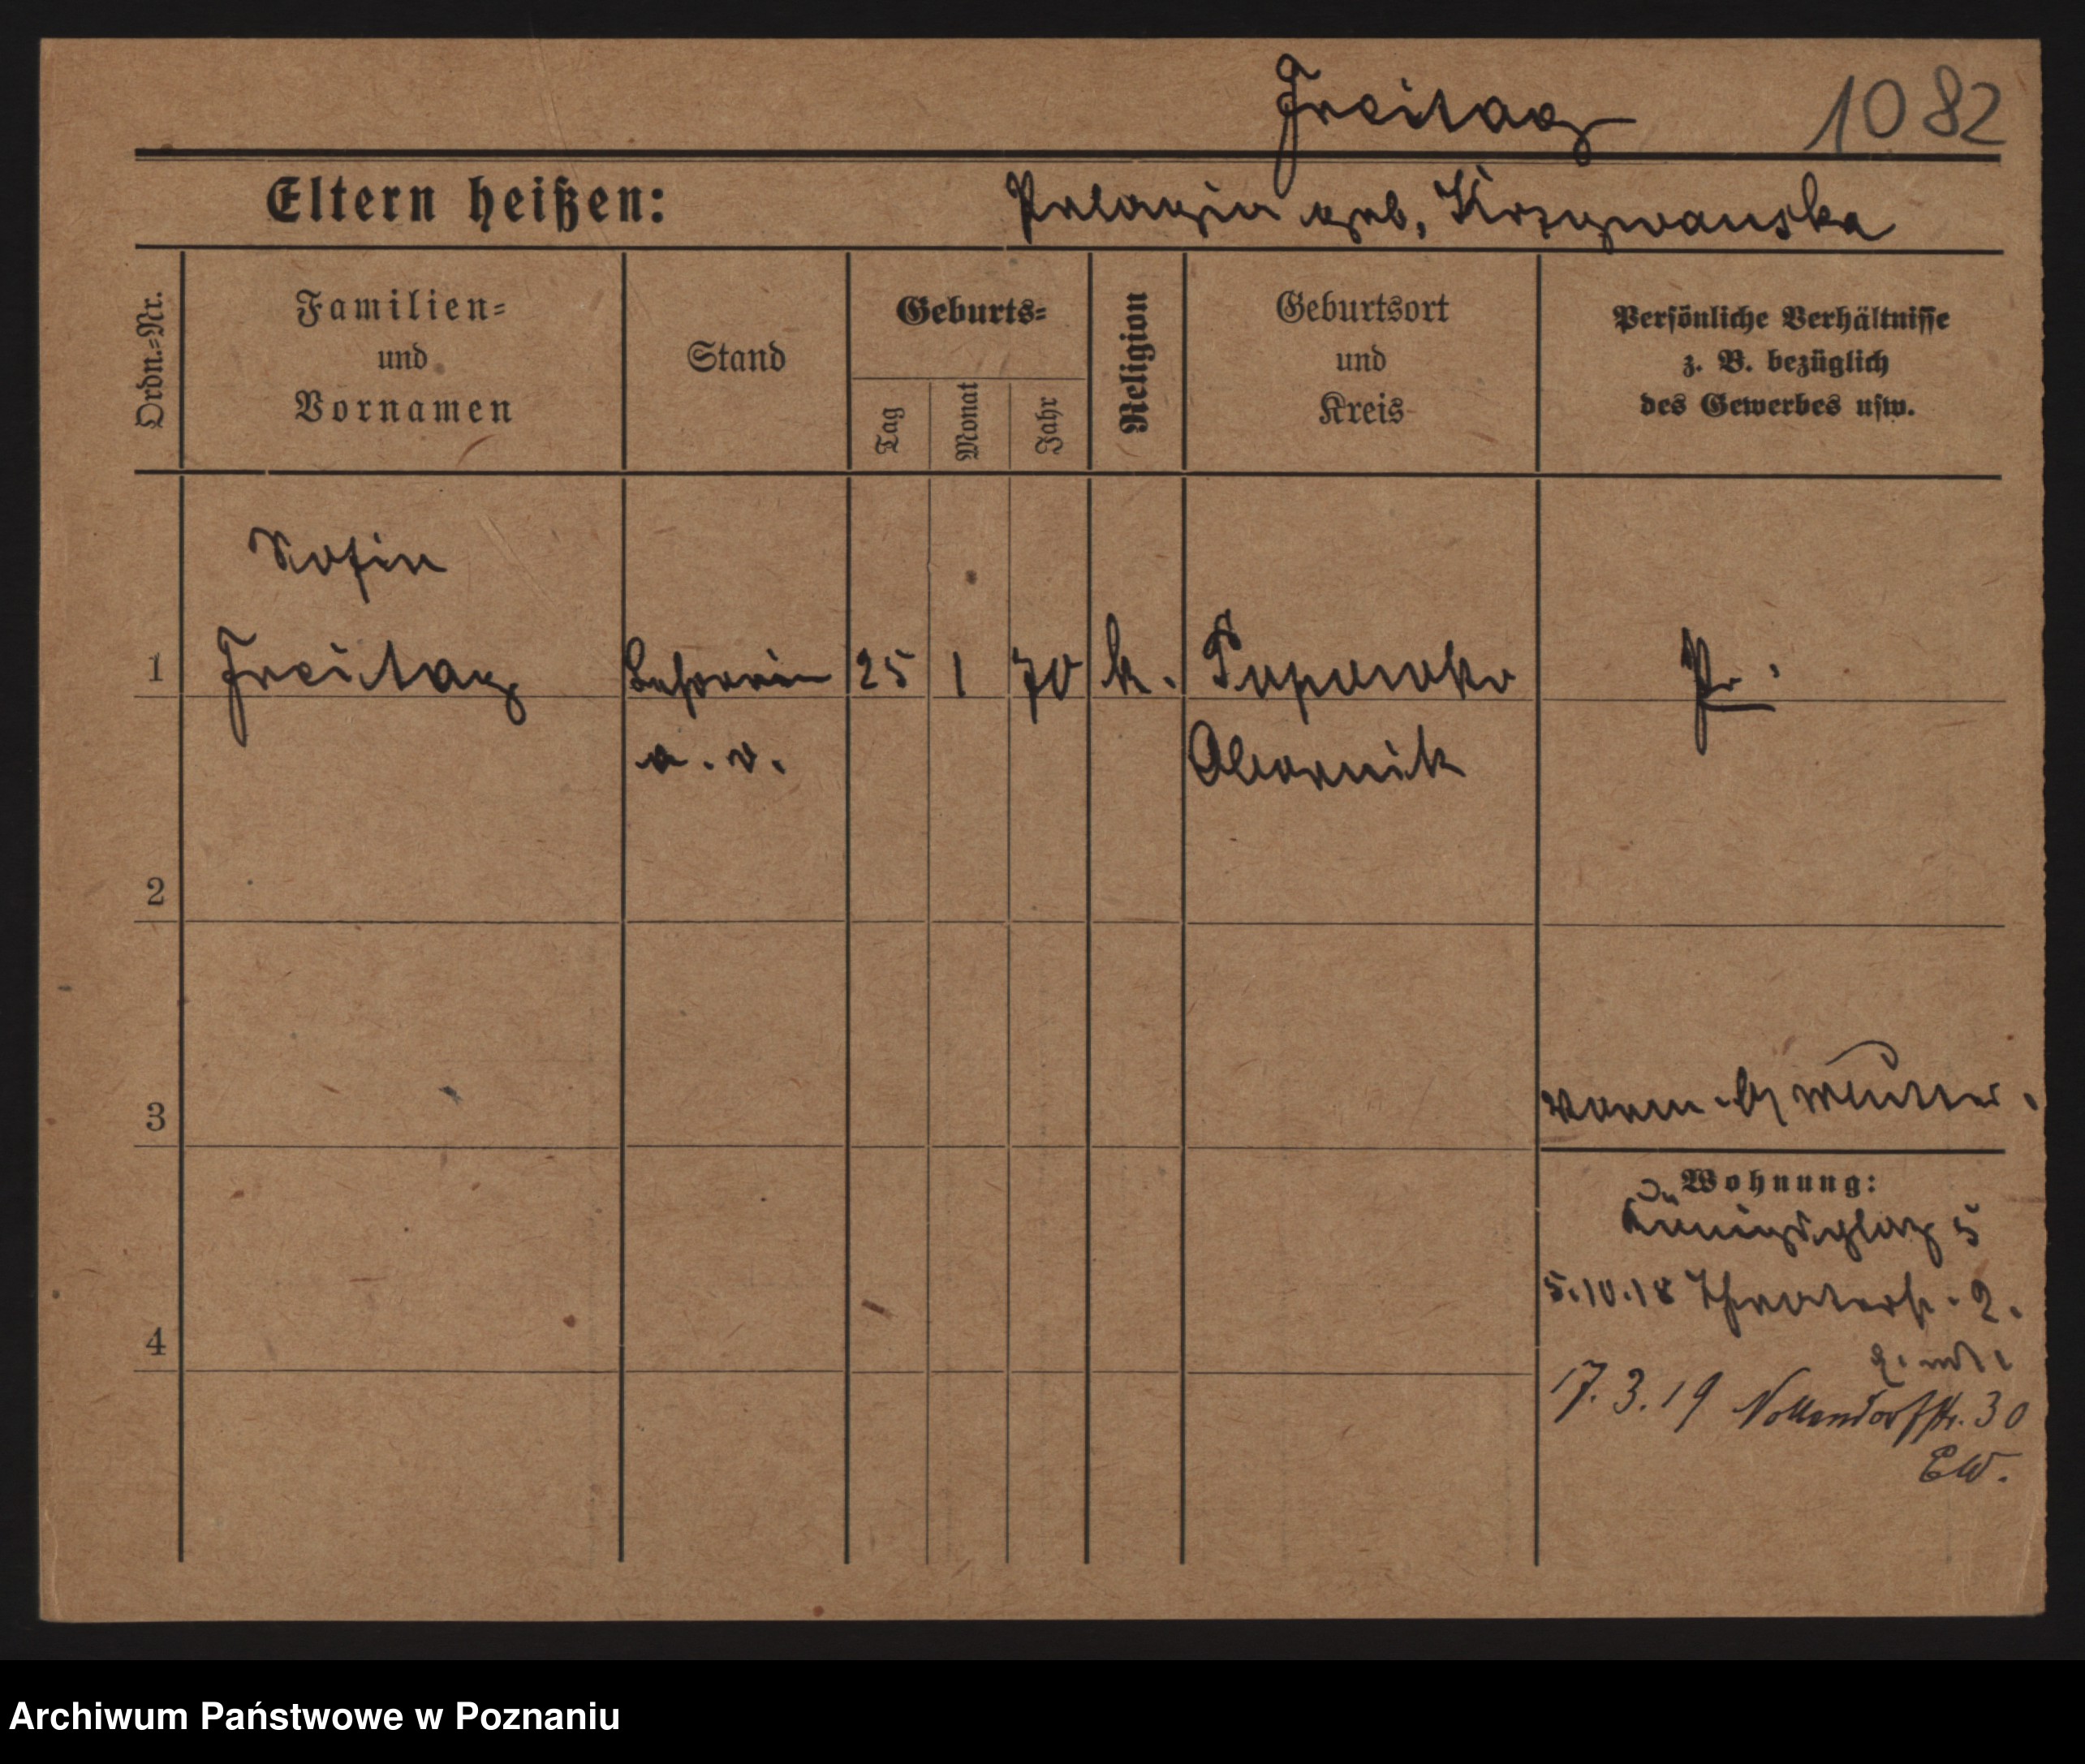 Freitag 1082
Eltern heißen: Pelagia geb. Krzyzwanska
Ordn.=Nr.
Familien=
und
Vornamen
Stand
Geburts=
Tag
Monat
Jahr
Religion
Geburtsort
und
Kreis
Persönliche Verhältnisse
z. B. bezüglich
des Gewerbes usw.
Sofie
1 Freitag Lehrerin 25 1 70 k. Pr.
a. D. Obornik
2
3
Mutter.
Wohnung:
Königsplatz 5
5.10.18 Theaterstr. 2.
17.3.19 Nollendorfstr. 30
EW.
4
Archiwum Państwowe w Poznaniu